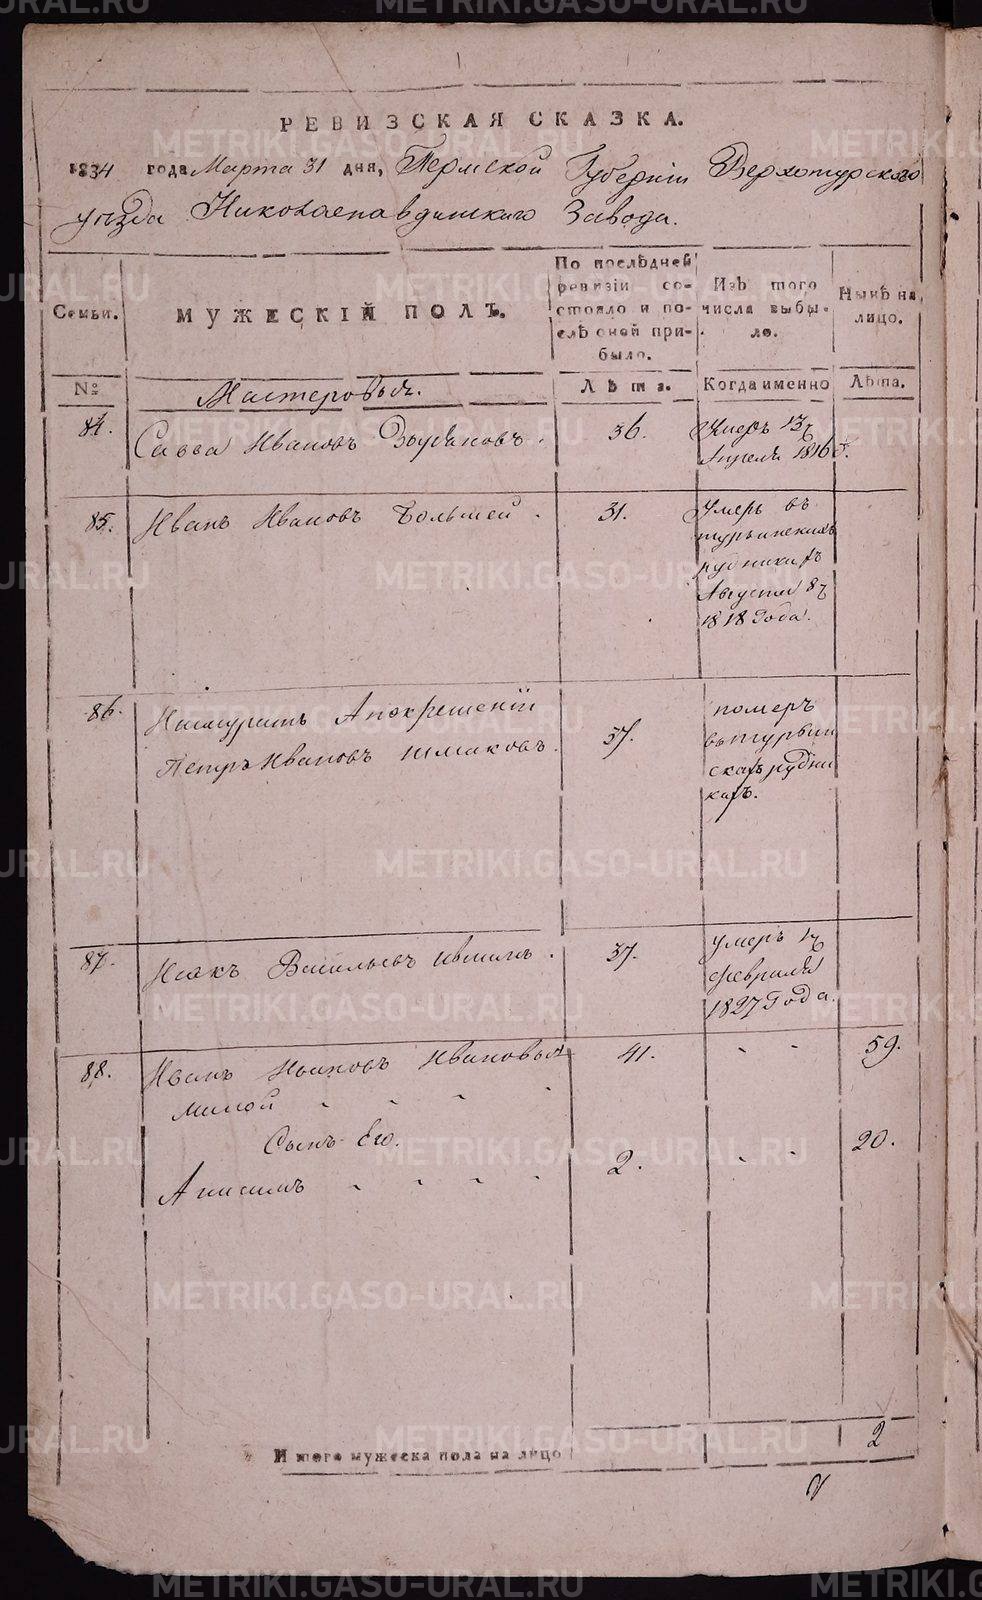 РЕВИЗСКАЯ СКАЗКА.
1834 года Марта 31 дня, Пермской Губернiи Верхотурскаго
уѣзда Николаепавдинскаго Завода.
Семьи.
МУЖЕСКIЙ ПОЛЪ.
По послѣдней
ревизiи со-
стояло и по-
слѣ оной при-
было.
Изъ того
числа выбы-
ло.
Нынѣ на
лицо.
№
Мастеровыя.
Лѣта.
Когда именно
Лѣта.
84.
Савва Ивановъ
36.
Умеръ 13
Апреля 1816
85.
Иванъ Ивановъ Большей
31.
Умеръ въ
турьинскихъ
рудникахъ
Августа 8
1818 Года.
86.
Петръ Ивановъ Шмаковъ.
37.
померъ
въ турьин
скахъ рудни
кахъ.
87.
Исакъ Васильевъ
37.
Умеръ
февраля
1827 Года.
88.
Иванъ Ивановъ
41.
59.
меной
Сынъ Его.
Анисимъ
2.
20.
Итого мужеска пола на лицо
2
METRIKI.GASO-URAL.RU